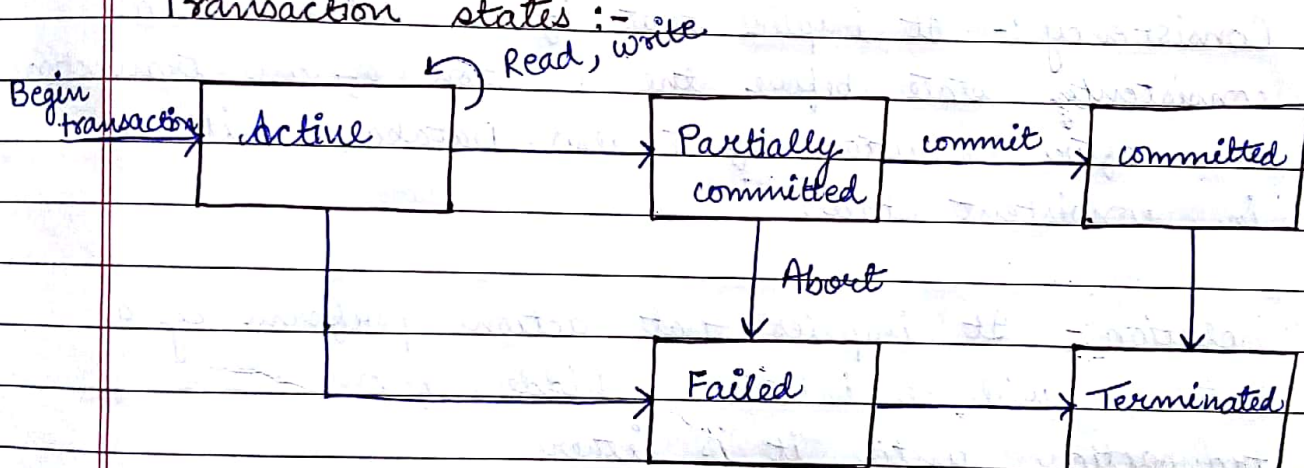 Transaction states :-
Read, write
Begin
transaction
Active
Partially
committed
commit
committed
Abort
Failed
Terminated